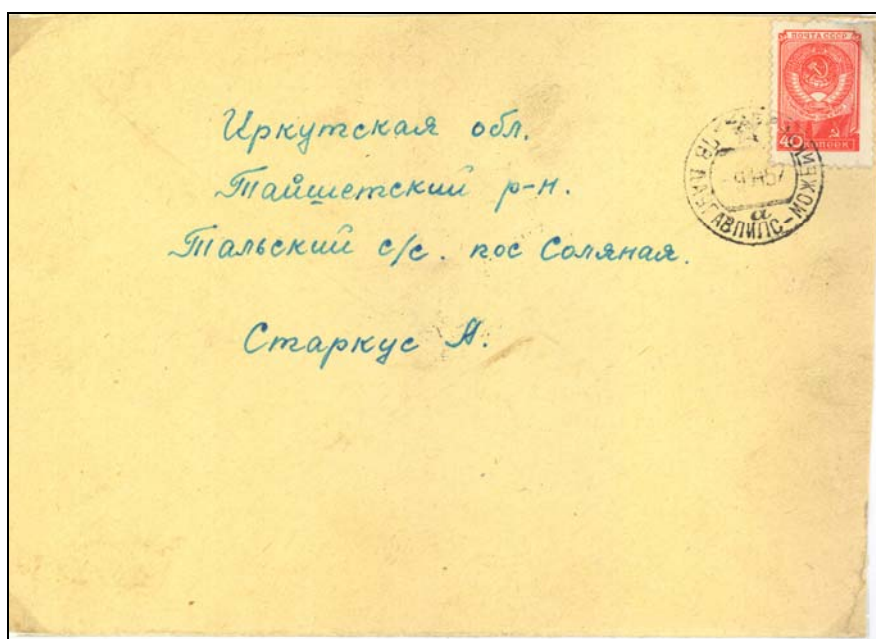 ПОЧТА СССР
40 КОПЕЕК
ПВ ДАУГАВПИЛС-
а
Иркутская обл.
Тайшетский р-н.
Тальский с/с. пос Соляная.
Старкус А.